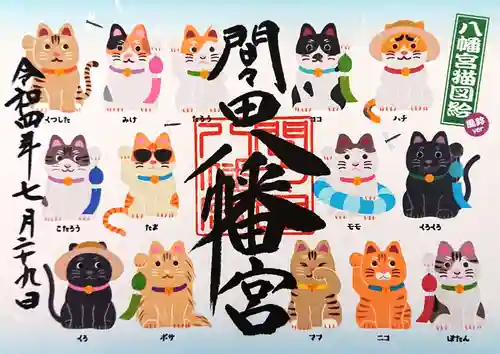 八幡宮猫図絵
風鈴
ver
間々田八幡宮
令和四年七月二十九日
くつした
みけ
たろう
ココ
ハナ
こたろう
たま
モモ
くろくろ
くろ
ボサ
フフ
ニコ
ぼたん